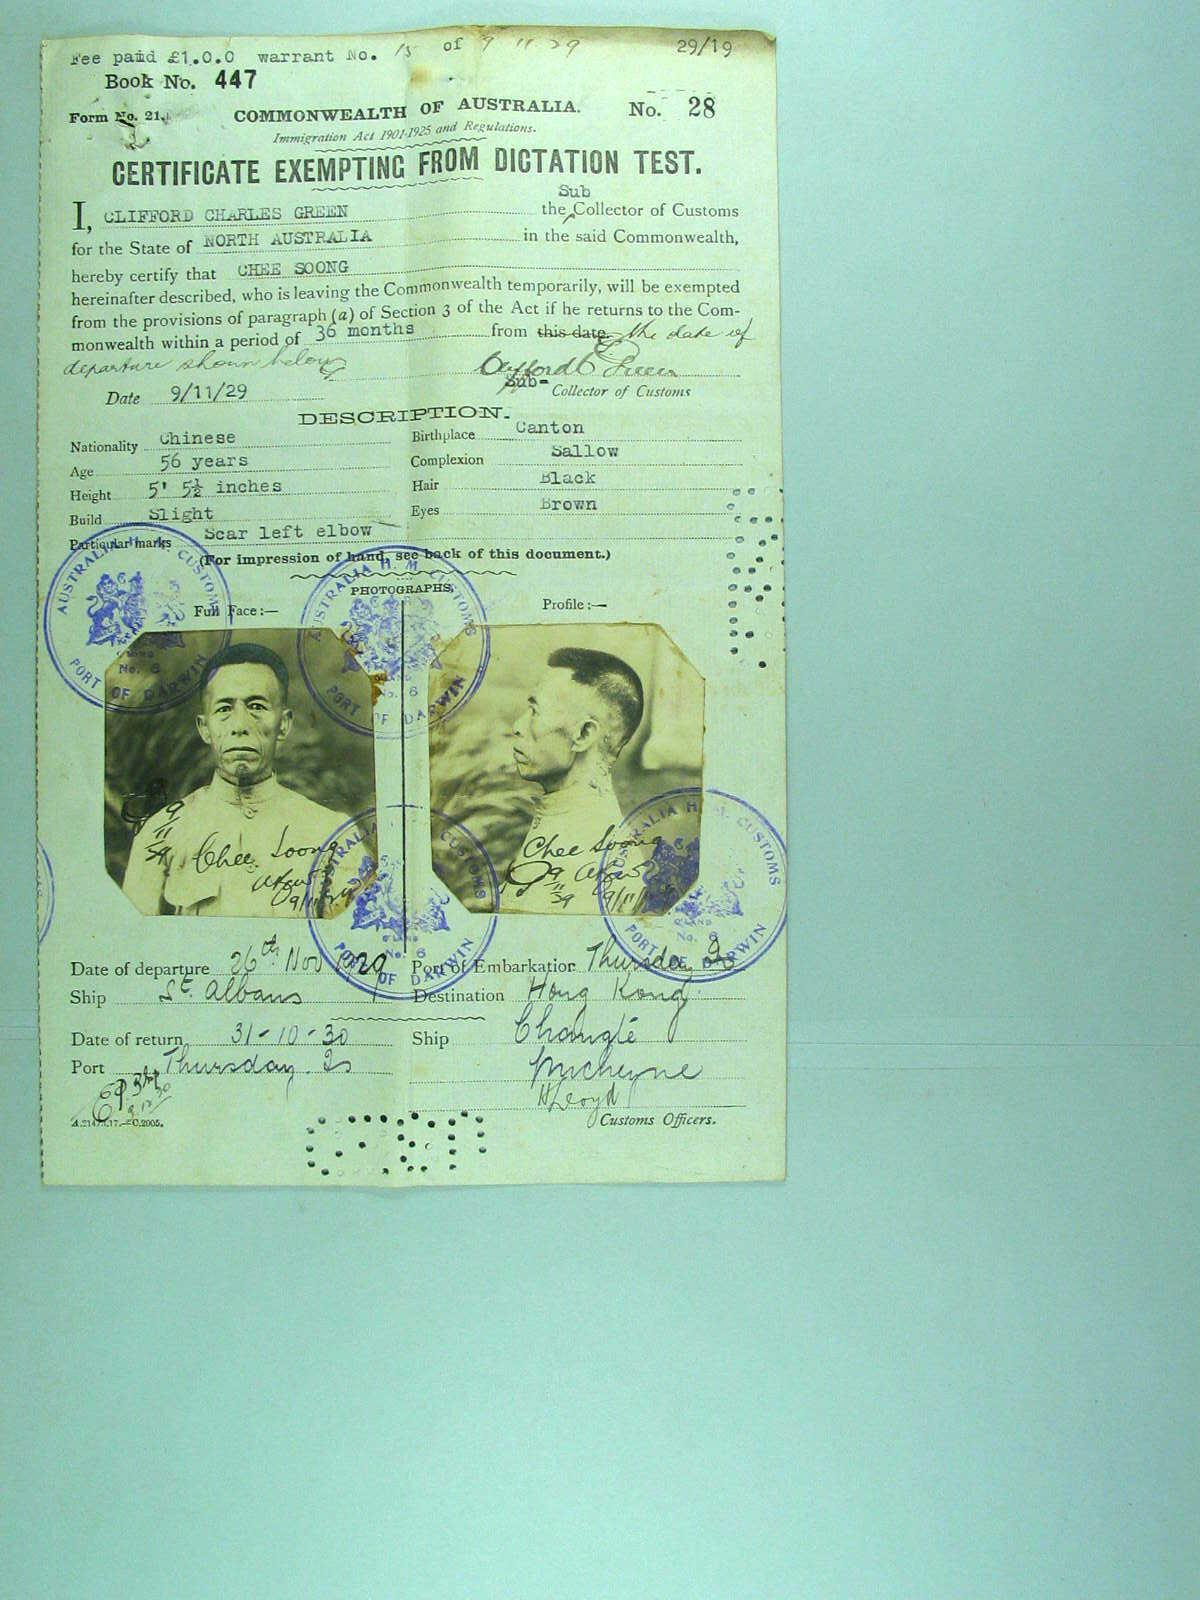 Fee paid £1.0.0 warrant No. 15 of 9 11 29
29/19
Book No. 447
Form No. 21.
COMMONWEALTH OF AUSTRALIA.
No. 28
Immigration Act 1901-1925 and Regulations.
CERTIFICATE EXEMPTING FROM DICTATION TEST.
Sub
I, CLIFFORD CHARLES GREEN the Collector of Customs
for the State of NORTH AUSTRALIA in the said Commonwealth,
hereby certify that CHEE SOONG
hereinafter described, who is leaving the Commonwealth temporarily, will be exempted
from the provisions of paragraph (a) of Section 3 of the Act if he returns to the Com-
monwealth within a period of 36 months from this date. the date of
departure shown below
Clifford C Green
Date 9/11/29
Sub- Collector of Customs
DESCRIPTION.
Nationality Chinese Birthplace Canton
Age 56 years Complexion Sallow
Height 5' 5½ inches Hair Black
Build Slight Eyes Brown
Particular marks Scar left elbow
(For impression of hand, see back of this document.)
PHOTOGRAPHS
Full Face:— Profile:—
AUSTRALIA H. M. CUSTOMS
No. 6
PORT OF DARWIN
AUSTRALIA H. M. CUSTOMS
No. 6
PORT OF DARWIN
9/11/29
Chee Soong
9/11/29
Chee Soong
9/11/29
9/11/29
AUSTRALIA CUSTOMS
No. 6
PORT OF DARWIN
AUSTRALIA H. M. CUSTOMS
No. 6
PORT OF DARWIN
Date of departure 26th Nov 1929 Port of Embarkation Thursday Is
Ship St. Albans Destination Hong Kong
Date of return 31-10-30 Ship Changte
Port Thursday Is
9.12.30
H Lloyd
Customs Officers.
C.2005.